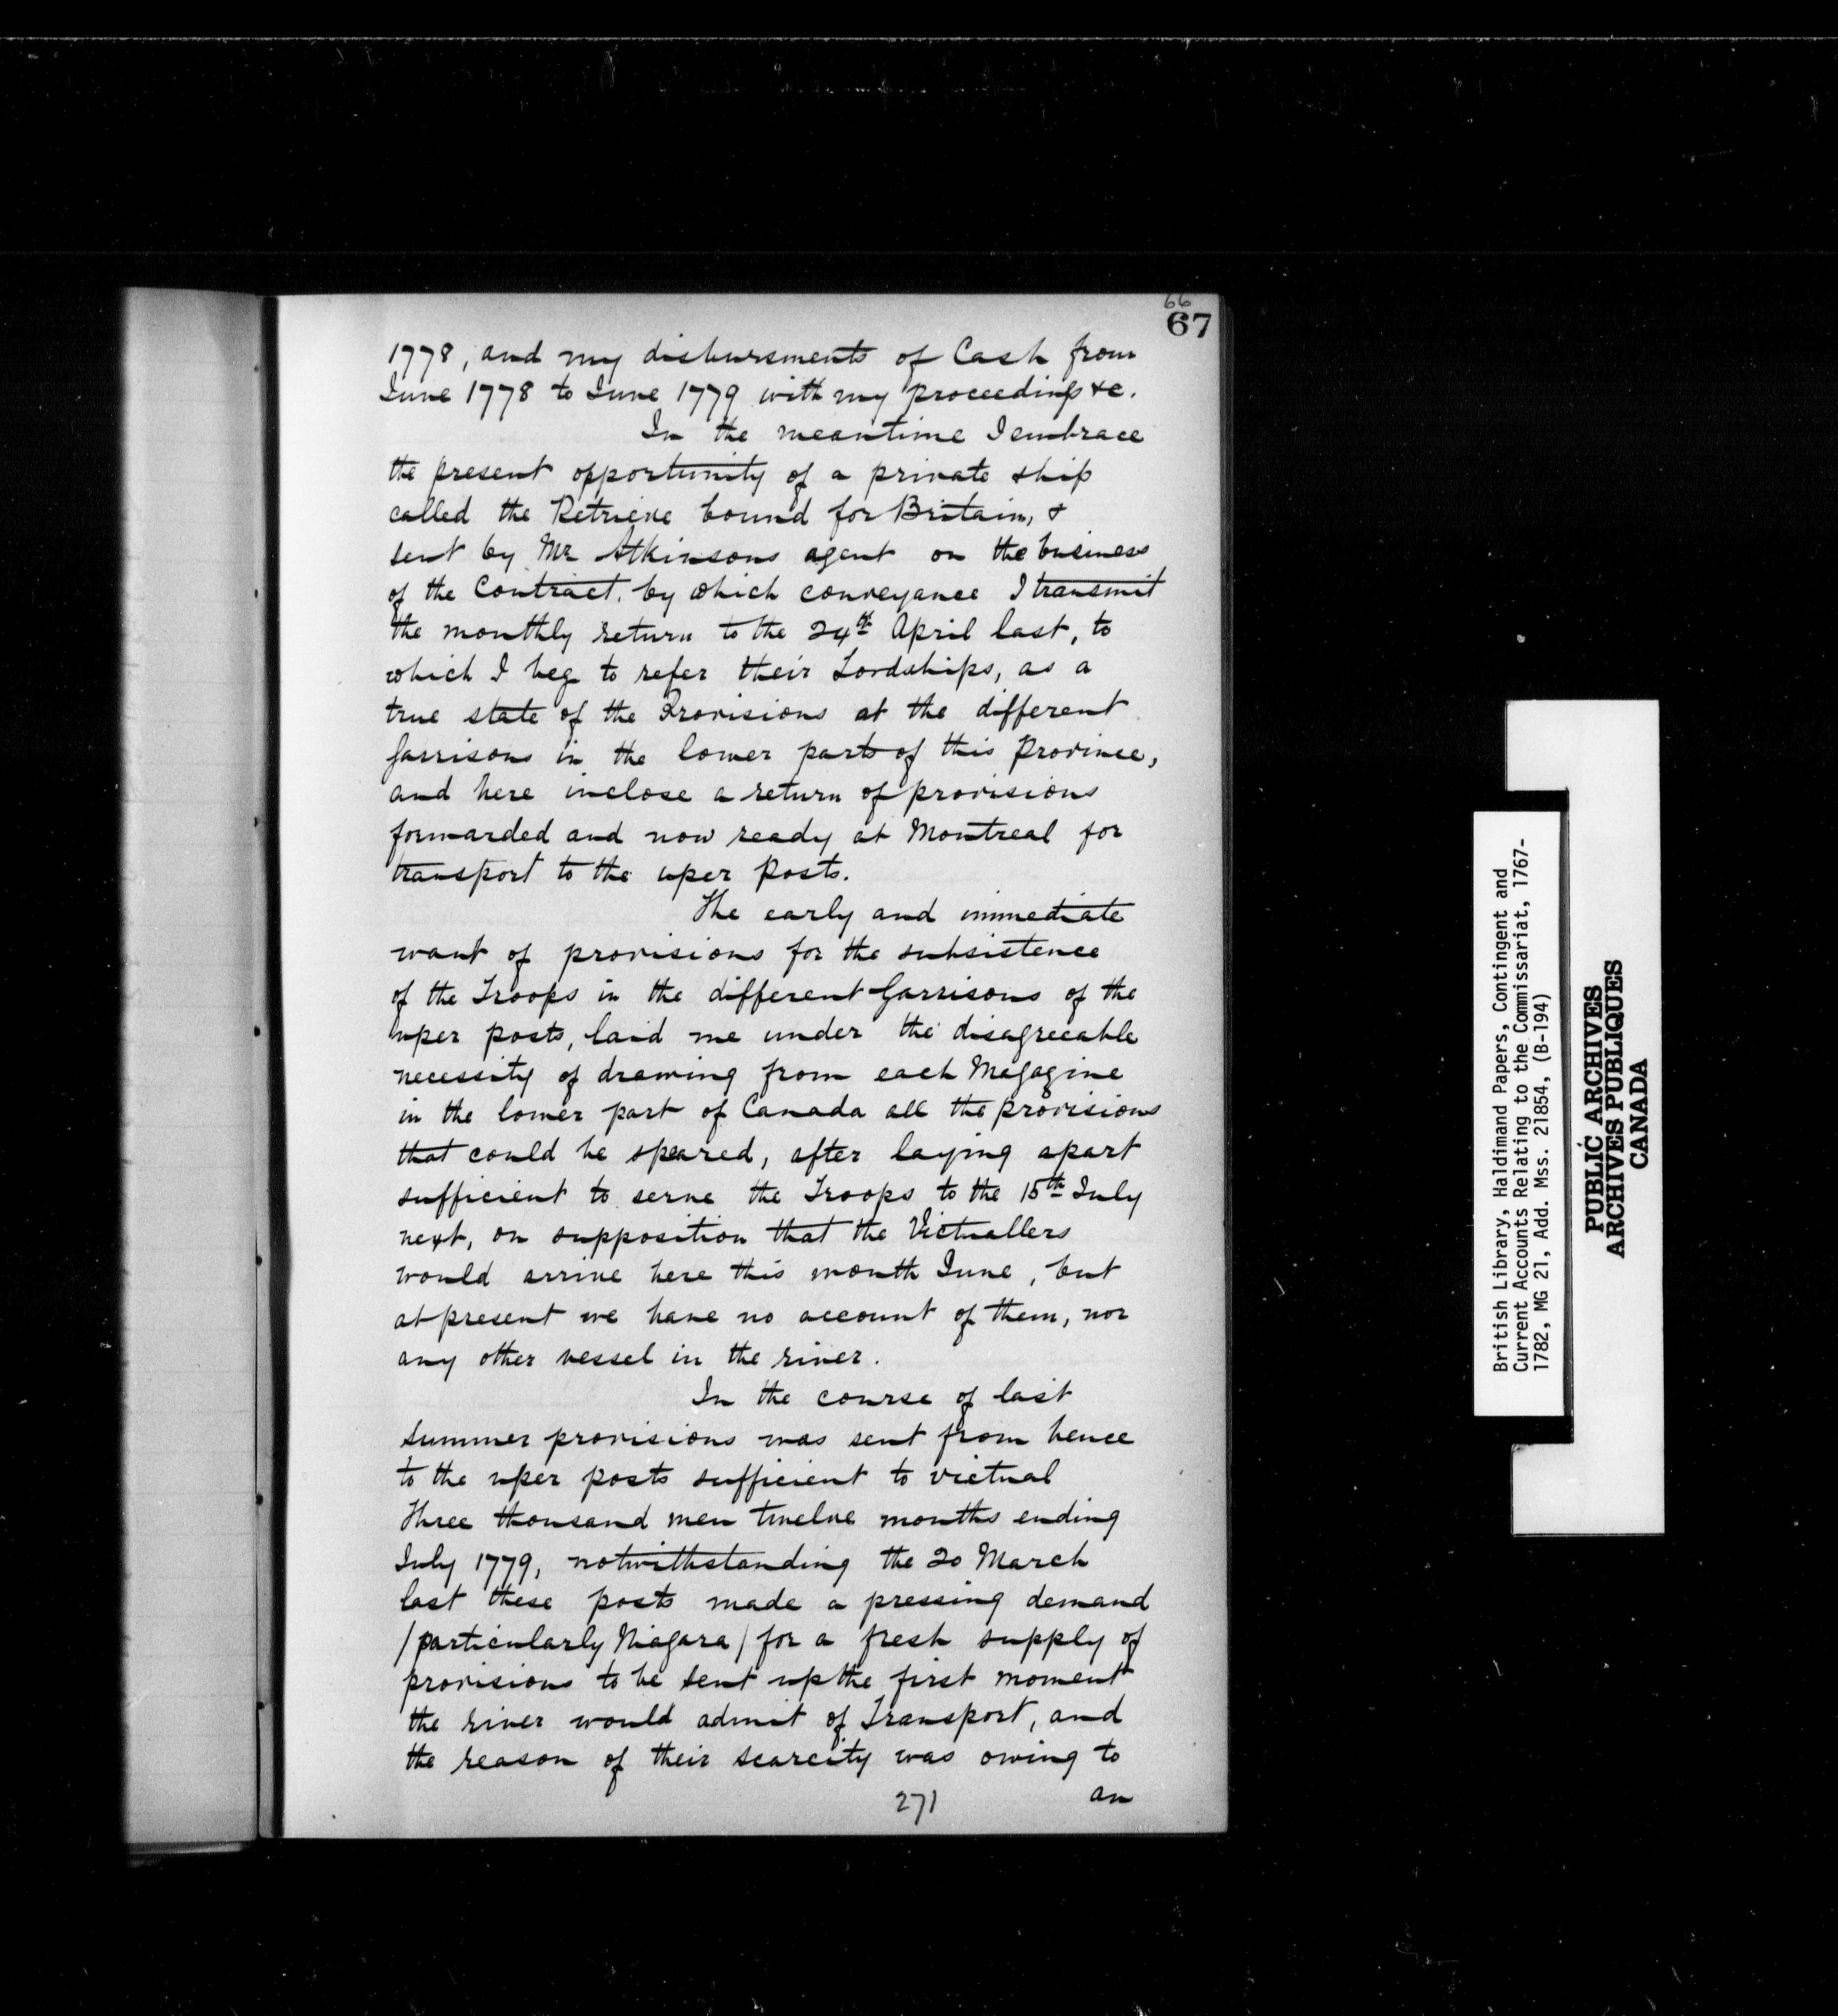 66
67
1778, and my disbursments of Cash from
June 1778 to June 1779 with my proceedings &c.
In the meantime I embrace
the present opportunity of a private ship
called the Retrieve bound for Britain, &
sent by Mr Atkinsons agent on the business
of the Contract. by which conveyance I transmit
the monthly return to the 24th April last, to
which I beg to refer their Lordships, as a
true state of the Provisions at the different
Garrisons in the lower parts of this Province,
and here inclose a return of provisions
forwarded and now ready at Montreal for
transport to the uper Posts.
The early and immediate
want of provisions for the subsistence
of the Troops in the different Garrisons of the
uper posts, laid me under the disagreeable
necessity of drawing from each Magazine
in the lower part of Canada all the provisions
that could be speared, after laying apart
sufficient to serve the Troops to the 15th July
next, on supposition that the Victuallers
would arrive here this month June, but
at present we have no account of them, nor
any other vessel in the river.
In the course of last
summer provisions was sent from hence
to the uper posts sufficient to victual
Three thousand men twelve months ending
July 1779, notwithstanding the 20 March
last these posts made a pressing demand
/particularly Niagara/ for a fresh supply of
provisions to be sent up the first moment
the river would admit of Transport, and
the reason of their scarcity was owing to
an
271
British Library, Haldimand Papers, Contingent and
Current Accounts Relating to the Commissariat, 1767-
1782, MG 21, Add. Mss. 21854, (B-194)
PUBLIC ARCHIVES
ARCHIVES PUBLIQUES
CANADA